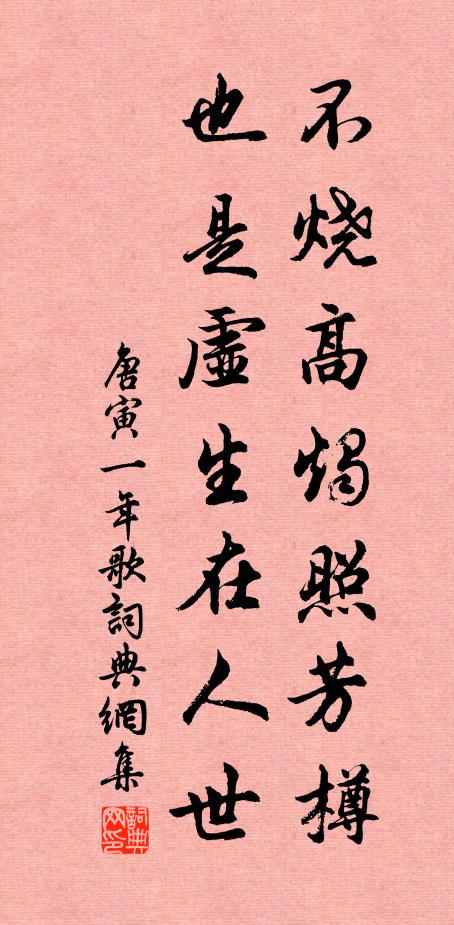 不烧高烛照芳樽
也是虚生在人世
唐寅一年歌詞典網集
詞典网印